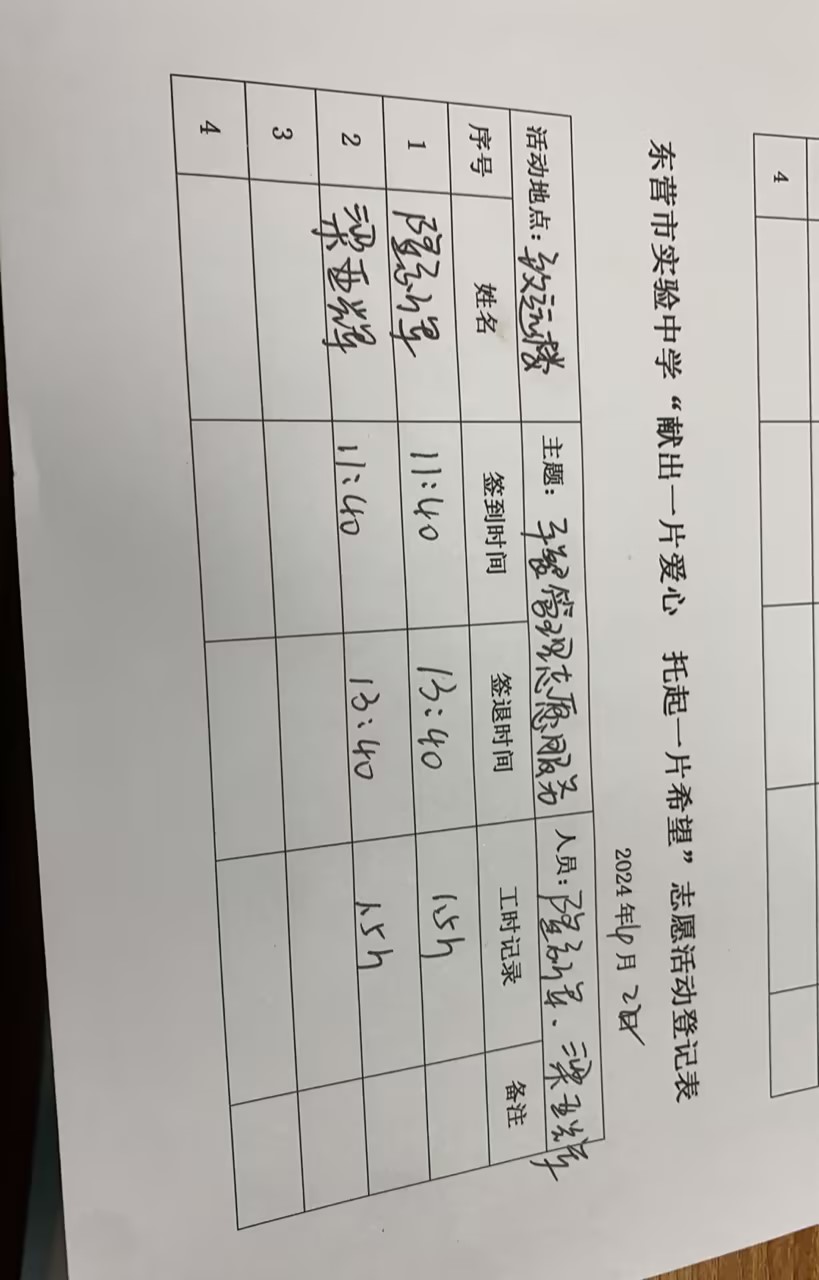 4
东营市实验中学“献出一片爱心 托起一片希望”志愿活动登记表
2024年4月2日
活动地点：致远楼 主题：午餐管理志愿服务 人员：隆、梁亚辉
序号 姓名 签到时间 签退时间 工时记录 备注
1 11:40 13:40 1.5h
2 梁亚辉 11:40 13:40 1.5h
3
4